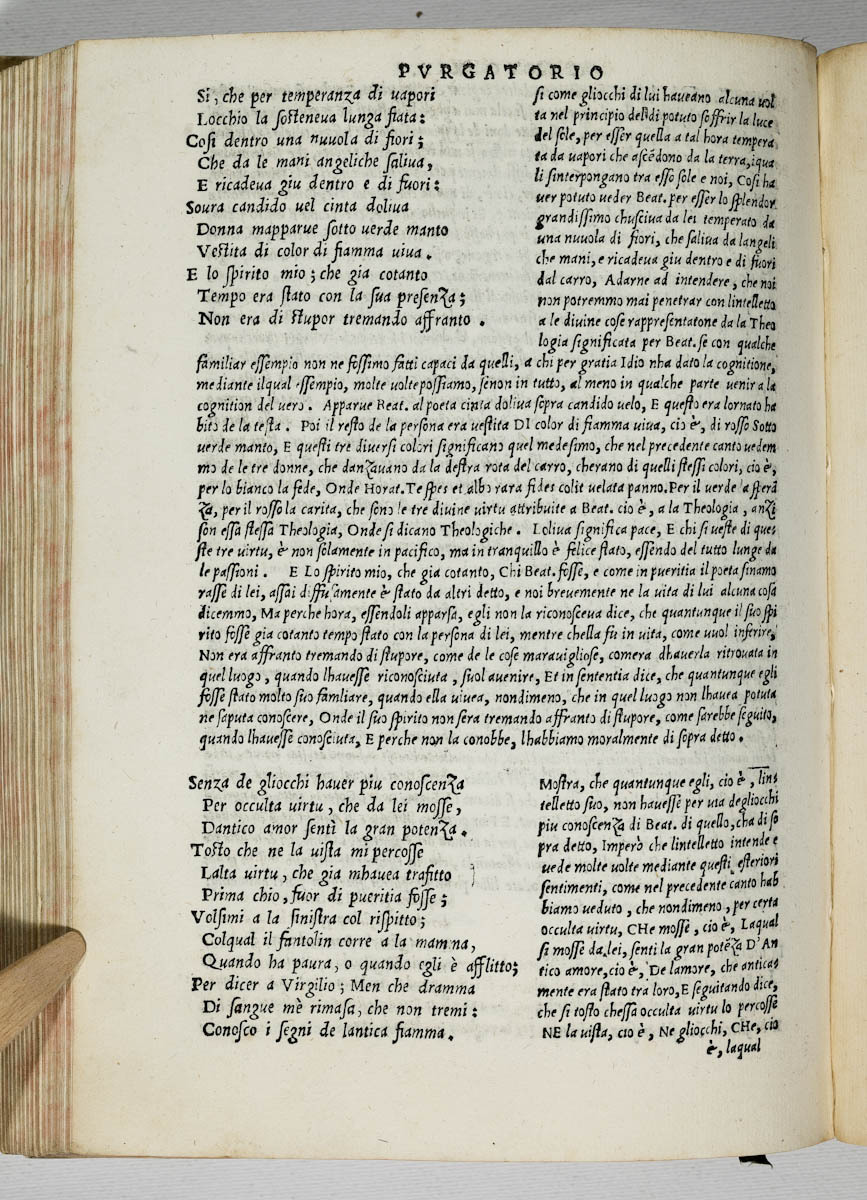 PVRGATORIO
Si, che per temperanza di uapori
Locchio la sosteneua lunga fiata:
Cosi dentro una nuuola di fiori;
Che da le mani angeliche saliua,
E ricadeua giu dentro e di fuori:
Soura candido uel cinta doliua
Donna mapparue sotto uerde manto
Vestita di color di fiamma uiua.
E lo spirito mio; che gia cotanto
Tempo era stato con la sua presenza;
Non era di stupor tremando affranto.
si come gliocchi di lui haueano alcuna uol
ta nel principio del dì potuto soffrir la luce
del sole, per esser quella a tal hora tempera
ta da uapori che ascēdono da la terra, iqua
li sinterpongano tra esso sole e noi, Cosi ha
uer potuto ueder Beat. per esser lo splendor
grandissimo chusciua da lei temperato da
una nuuola di fiori, che saliua da langeli
che mani, e ricadeua giu dentro e di fuori
dal carro, Adarne ad intendere, che noi
non potremmo mai penetrar con lintelletto
a le diuine cose rappresentatone da la Theo
logia significata per Beat. se con qualche
familiar essempio non ne fossimo fatti capaci da quelli, a chi per gratia Idio nha dato la cognitione,
mediante ilqual essempio, molte uolte possiamo, senon in tutto, al meno in qualche parte uenir a la
cognition del uero. Apparue Beat. al poeta cinta doliua sopra candido uelo, E questo era lornato ha
bito de la testa. Poi il resto de la persona era uestita DI color di fiamma uiua, cio è, di rosso Sotto
uerde manto, E questi tre diuersi colori significano quel medesimo, che nel precedente canto uedem
mo de le tre donne, che danzauano da la destra rota del carro, cherano di quelli stessi colori, cio è,
per lo bianco la fede, Onde Horat. Te spes et albo rara fides colit uelata panno. Per il uerde a sperā
za, per il rosso la carita, che sono le tre diuine uirtu attribuite a Beat. cio è, a la Theologia, anzi
son essa stessa Theologia, Onde si dicano Theologiche. Loliua significa pace, E chi si ueste di que
ste tre uirtu, è non solamente in pacifico, ma in tranquillo è felice stato, essendo del tutto lunge da
le passioni. E Lo spirito mio, che gia cotanto, Chi Beat. fosse, e come in pueritia il poeta sinamo
rasse di lei, assai diffusamente è stato da altri detto, e noi breuemente ne la uita di lui alcuna cosa
dicemmo, Ma perche hora, essendoli apparsa, egli non la riconosceua dice, che quantunque il suo spi
rito fosse gia cotanto tempo stato con la persona di lei, mentre chella fu in uita, come uuol inferire,
Non era affranto tremando di stupore, come de le cose marauigliose, comera dhauerla ritrouata in
quel luogo, quando lhauesse riconosciuta, suol auenire, Et in sententia dice, che quantunque egli
fosse stato molto suo famliare, quando ella uiuea, nondimeno, che in quel luogo non lhauea potuta
ne saputa conoscere, Onde il suo spirito non sera tremando affranto di stupore, come sarebbe seguito,
quando lhauesse conosciuta, E perche non la conobbe, lhabbiamo moralmente di sopra detto.
Senza de gliocchi hauer piu conoscenza
Per occulta uirtu, che da lei mosse,
Dantico amor sentì la gran potenza.
Tosto che ne la uista mi percosse
Lalta uirtu, che gia mhauea trafitto
Prima chio, fuor di pueritia fosse;
Volsimi a la sinistra col rispitto;
Colqual il fantolin corre a la mamma,
Quando ha paura, o quando egli è afflitto;
Per dicer a Virgilio; Men che dramma
Di sangue mè rimasa, che non tremi:
Conosco i segni de lantica fiamma.
Mostra, che quantunque egli, cio è, lin
telletto suo, non hauesse per uia degliocchi
piu conoscenza di Beat. di quello, cha di so
pra detto, Imperò che lintelletto intende e
uede molte uolte mediante questi esteriori
sentimenti, come nel precedente canto hab
biamo ueduto, che nondimeno, per certa
occulta uirtu, CHe mosse, cio è, Laqual
si mosse da lei, senti la gran potēza D'An
tico amore, cio è, De lamore, che antica
mente era stato tra loro, E seguitando dice,
che si tosto chessa occulta uirtu lo percosse
NE la uista, cio è, Ne gliocchi, CHe, cio
è, laqual